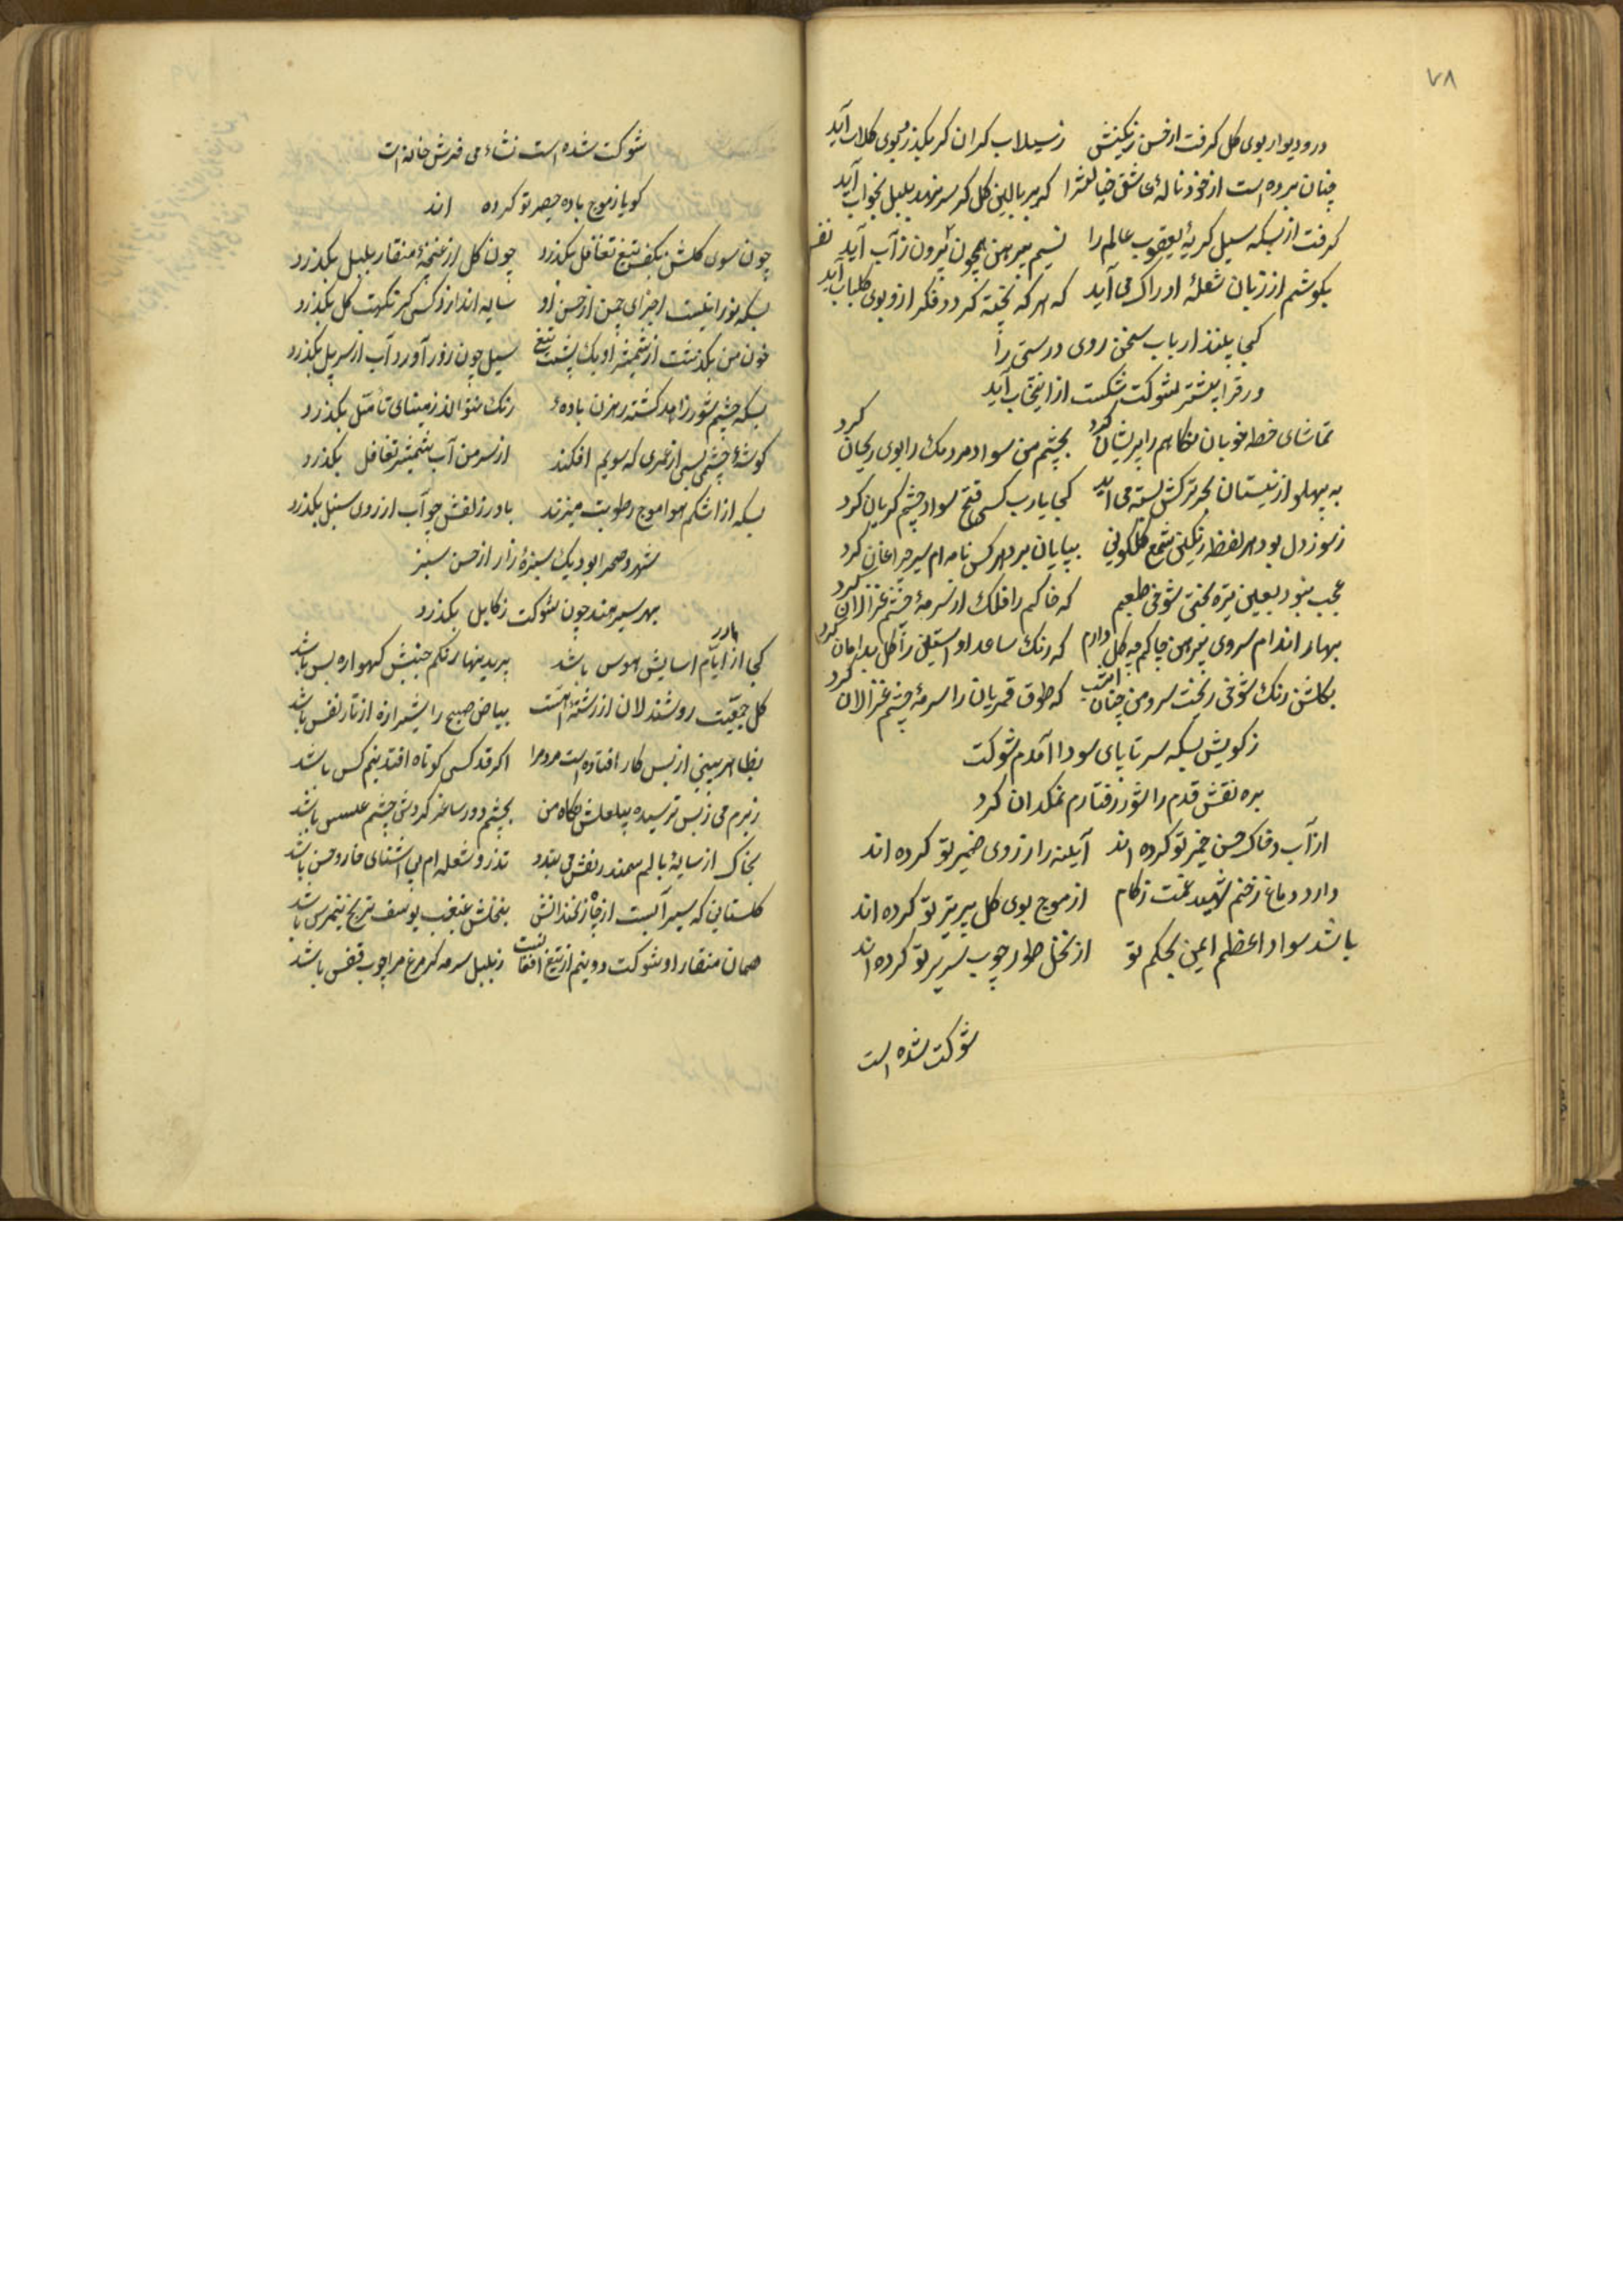 ۷۸
در و دیوار بوی کل کرفت از حسن رنکینش زسیلاب کران کر بکذرد بوی کلاب آید
چنان برده است از خود ناله عاشق خیالش را که بر بالین کل کر سر نهد بلبل بخواب آید
کرفت از بسکه سیل کریه یعقوب عالم را نسیم پیرهن همچون بیرون ز آب آید
بکوشم از زبان شعله ادراک می آید که هر که پخته کردد فکر از و بوی کباب آید
کجا بینند ارباب سخن روی درستی را
ورق را بیشتر شوکت شکست از انتخاب آید
تماشای خط خوبان نکاهم را پریشان کرد بچشم من سواد مردمک را بوی ریحان کرد
به پهلو از نیستان ترکش بسته می آید کجا یارب کسی فتح سواد چشم کریان کرد
زسوز دل بود هر لفظ رنکین شمع کلکونی بپایان برد هر کس نامه ام سیر چراغان کرد
عجب نبود بعین تیره بختی شوخی طبعم که خاکم را فلک از سرمه چشم غزالان کرد
بهار اندام سروی پیرهن چاکم چه کل دارم که رنک ساعد او آستین را کل بدامان کرد
بکلشن رنک شوخی ریخت سرو من چنان امشب که طوق قمریان را سرمه چشم غزالان کرد
زکویش بسکه سر تا پای سودا آمدم شوکت
بره نقش قدم را شور رفتارم نمکدان کرد
از آب و خاک حسن خمیر تو کرده اند آیینه را ز روی ضمیر تو کرده اند
دارد دماغ زخم شهید غمت زکام از موج بوی کل پر تیر تو کرده اند
باشد سواد اعظم ایمن بحکم تو از نخل طور چوب سریر تو کرده اند
شوکت شده است
شوکت شده است نشاء می فرش خانه ات
کویا ز موج باده حصیر تو کرده اند
چون سوی کلشن بکف تیغ تغافل بکذرد چون کل از غنچه منقار بلبل بکذرد
بسکه نورانیست اجزای چمن از حسن او سایه اندازد کسی کز نکهت کل بکذرد
خون من بکذشت از شمشیر او یک پشت تیغ سیل چون زور آورد آب از سر پل بکذرد
بسکه چشم شور زاهد کشته رهزن باده رنک نتواند ز مینای تامل بکذرد
کوشه چشمی پس از عمری که سویم افکند از سر من آب شمشیر تغافل بکذرد
بسکه از اشکم هوا موج رطوبت میزند باد رزلفش چو آب از روی سنبل بکذرد
شهر و صحرا بود یک سبزه زار از حسن سبز
بهر سیر هند چون شوکت ز کابل بکذرد
کجا از مادر ایام اسایش هوس باشد پریدنهای رنکم جنبش کهواره بس باشد
کل جمعیت روشندلان از رشته است بیاض صبح را شیرازه از تار نفس باشد
بظاهر بینی از بس کار افتاده است مردم را اکر قد کسی کوتاه افتد نیم کس باشد
زبزم می زبس ترسیده نکاه من بچشم دور ساغر کردش چشم عسس باشد
بخاک از سایه بالم سمندر نقش می بندد تذرو شعله ام بی اشنای خار و خس باشد
کلستانی که سیرآبست از چاه زنخدانش بنخلش غبغب یوسف ترنج نیم رس باشد
همان منقار او شوکت دو نیم از تیغ افغانست زبلبل سرمه کر مرغ مرا چوب قفس باشد